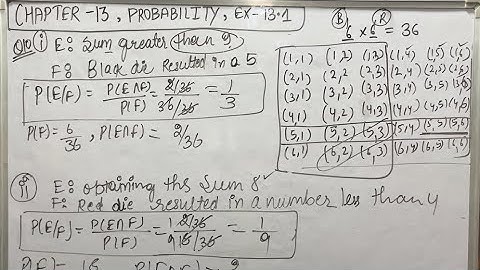 CHAPTER-13, PROBABILITY, EX-13.1
(B) (R)
6 x 6 = 36
Q10 (i) E: Sum greater than 9
F: Black die Resulted in a 5
P(E/F) = P(E∩F)/P(F) = 2/36 / 6/36 = 1/3
P(F) = 6/36, P(E∩F) = 2/36
(1,1) (1,2) (1,3) (1,4) (1,5) (1,6)
(2,1) (2,2) (2,3) (2,4) (2,5) (2,6)
(3,1) (3,2) (3,3) (3,4) (3,5) (3,6)
(4,1) (4,2) (4,3) (4,4) (4,5) (4,6)
(5,1) (5,2) (5,3) (5,4) (5,5) (5,6)
(6,1) (6,2) (6,3) (6,4) (6,5) (6,6)
(ii) E: obtaining ths Sum 8
F: Red die resulted in a number less than 4
P(E/F) = P(E∩F)/P(F) = 1 2/36 / 9 18/36 = 1/9
P(F) = 18 P(E∩F) = 2